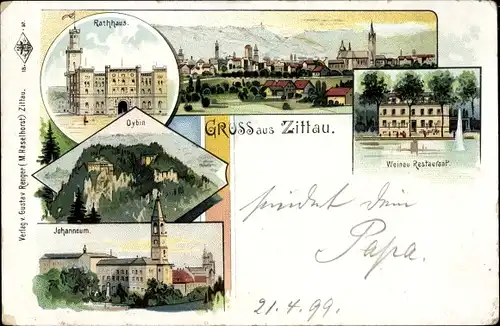 Rathhaus.
Oybin
Gruss aus Zittau.
Weinau Restaurant.
Johanneum.
Verlag v. Gustav Renger (M. Haselhorst) Zittau.
sendet dein
Papa.
21.4.99.